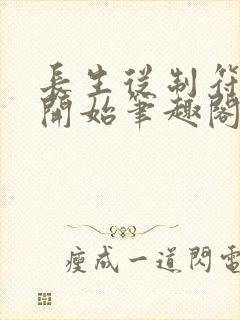 長生從制符
開始筆趣閣
瘦成一道閃電